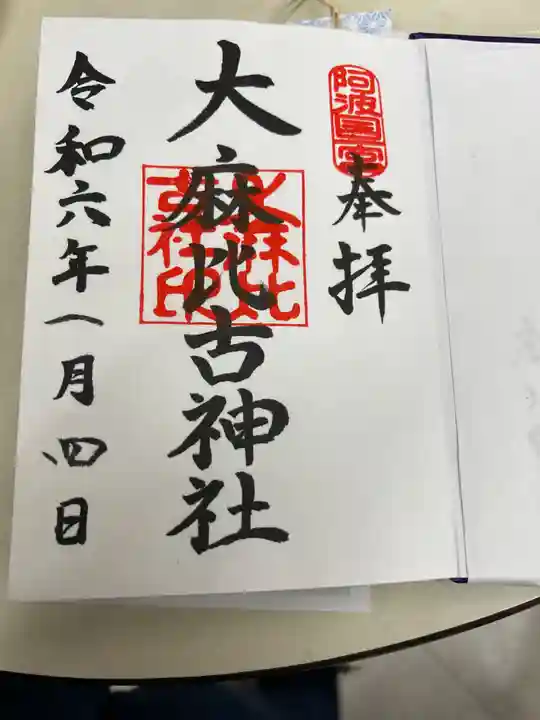 阿波國一宮
奉拝
大麻比古神社
大麻比古神社印
令和六年一月四日